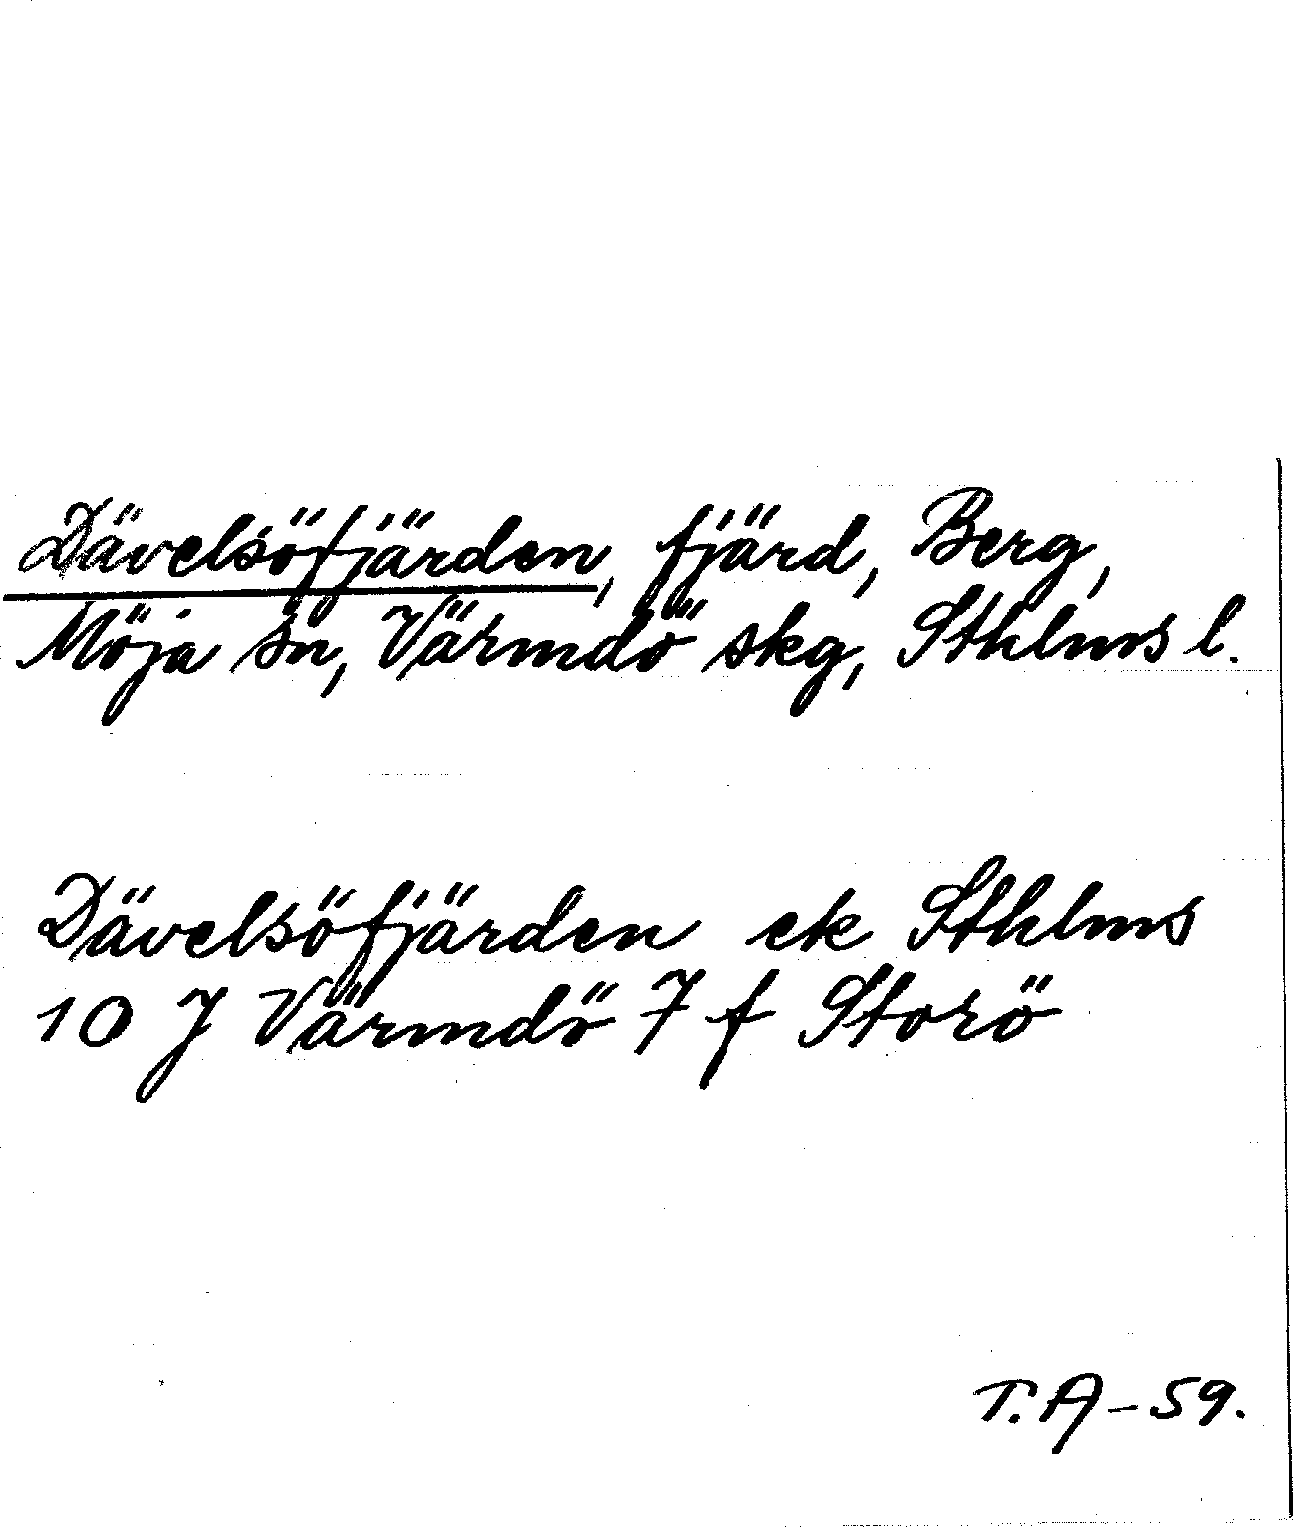 Dävelsöfjärden, fjärd, Berg,
Möja sn, Värmdö skg, Sthlms l.
Dävelsöfjärden ek Sthlms
10 J Värmdö 7 f Storö
T.A-59.